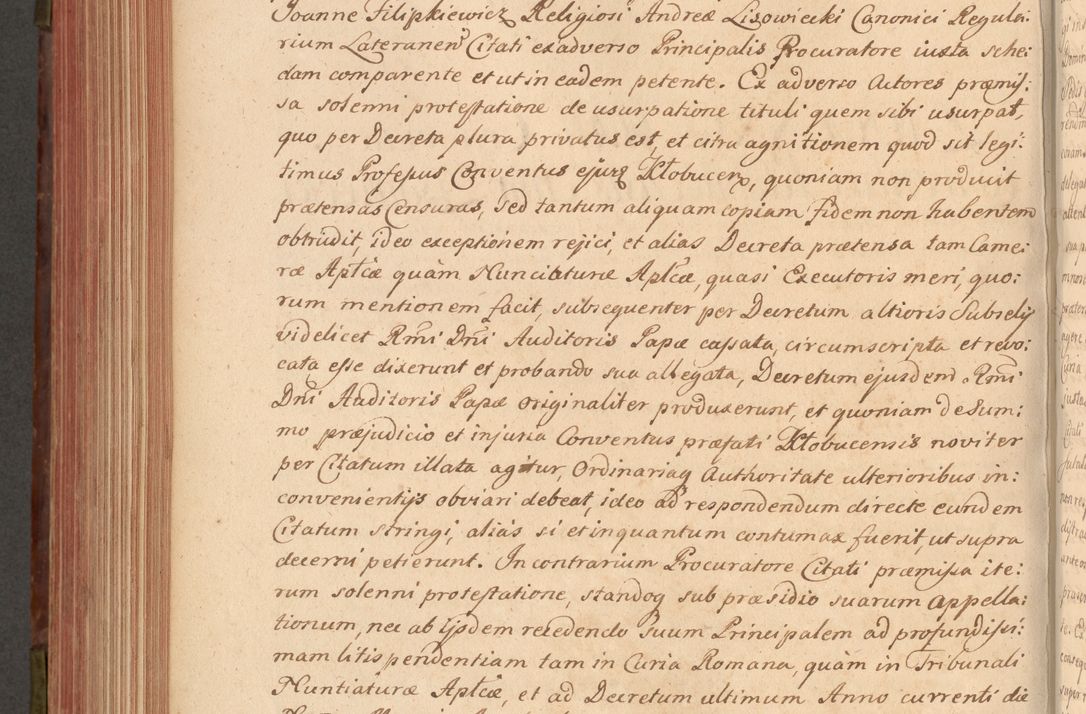 Joanne Filipkiewicz Religiosi Andreæ Lisowiecki Canonici Regula:
rium Lateranen Citati ex adverso Principalis Procuratore iuxta sche:
dam comparente et ut in eadem petente. Ex adverso Actores præmis:
sa solenni protestatione de usurpatione tituli quem sibi usurpat,
quo per Decreta plura privatus est, et citra agnitionem quod sit legi:
timus Profesus Conventus ejusq Kłobucen, quoniam non producit
prætensas Censuras, sed tantum aliquam copiam fidem non habentem
obtrudit, ideo exceptionem rejici, et alias Decreta prætensa tam Came:
ræ Aptcæ quàm Nunciaturæ Aptcæ, quasi Executoris meri, quo:
rum mentionem facit, subsequenter per Decretum altioris Subselij
videlicet Rmi Dni Auditoris Papæ cassata, circumscripta et revo:
cata esse dixerunt et probando sua allegata, Decretum ejusdem Rmi
Dni Auditoris Papæ originaliter produxerunt, et quoniam de sum:
mo præjudicio et injuria Conventus præfati Kłobucensis noviter
per Citatum illata agitur, Ordinariaq Authoritate ulterioribus in:
convenientijs obviari debeat, ideo ad respondendum directe eundem
Citatum stringi, alias si et inquantum contumax fuerit, ut supra
decerni petierunt. In contrarium Procuratore Citati præmissa ite:
rum solenni protestatione, standoq sub præsidio suarum appella:
tionum, nec ab ijsdem recedendo suum Principalem ad profundissi:
mam litis pendentiam tam in Curia Romana, quàm in Tribunali
Nuntiaturæ Aptcæ, et ad Decretum ultimum Anno currenti die